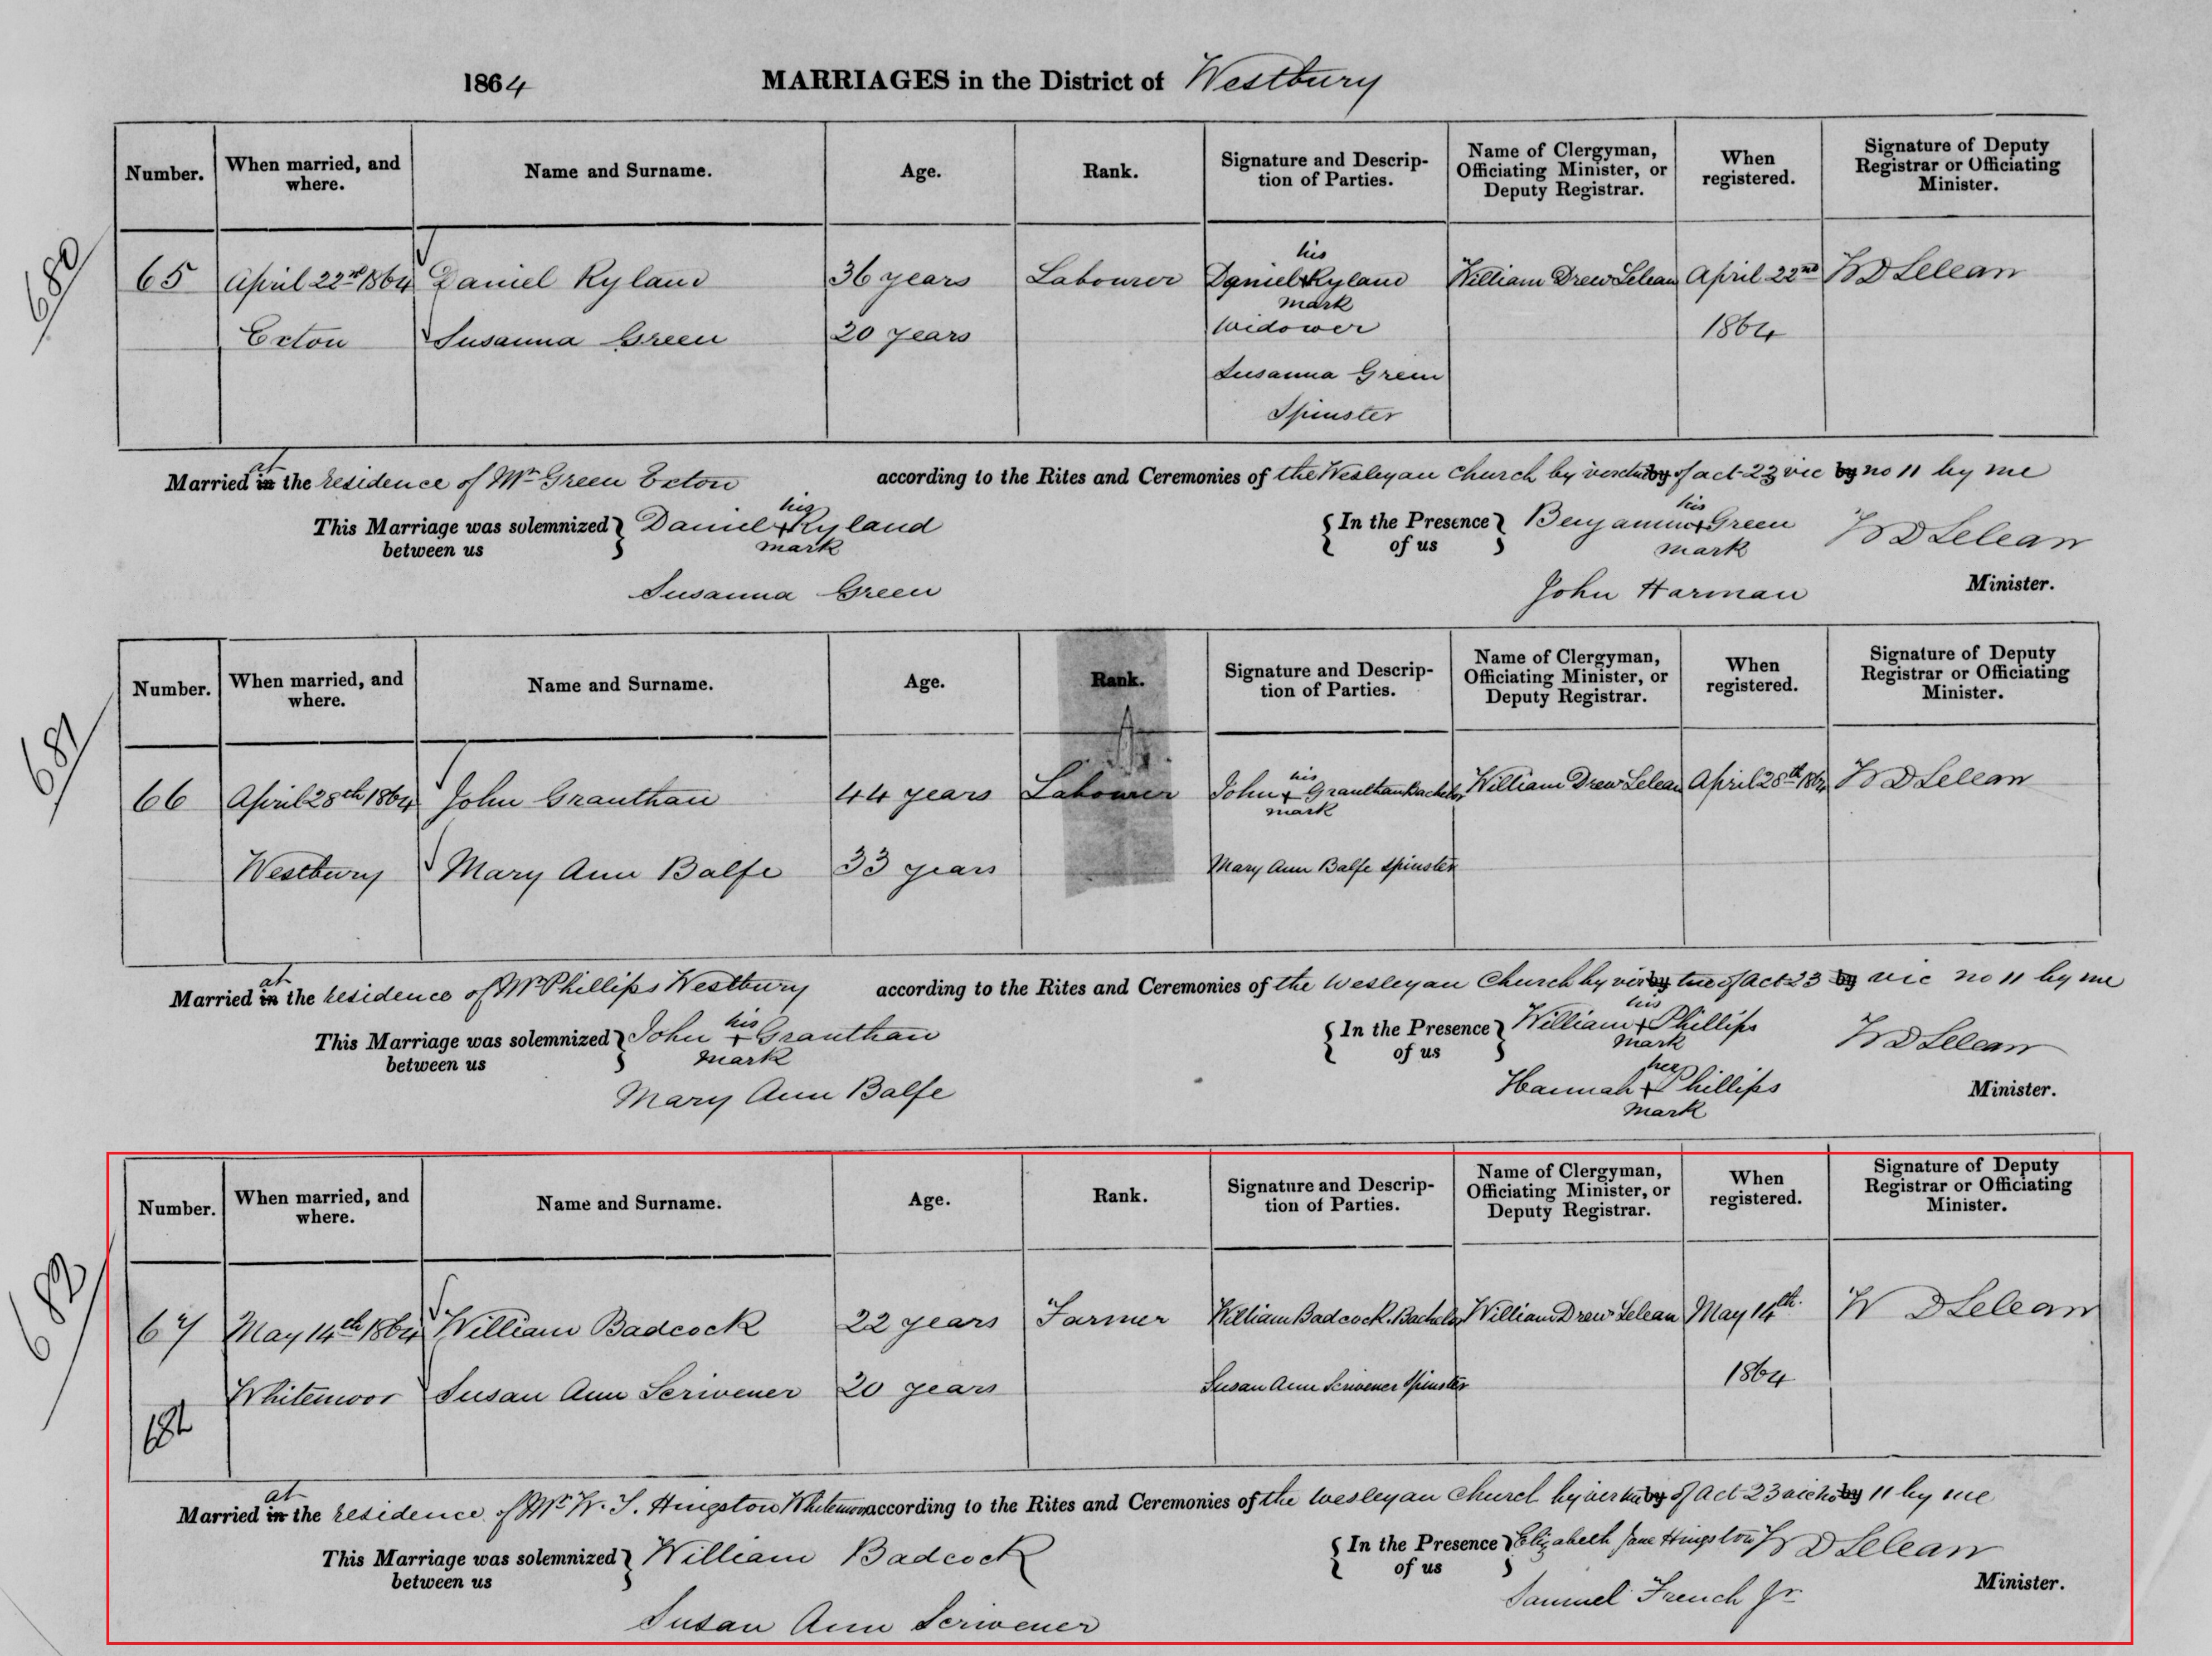 1864 MARRIAGES in the District of Westbury
Number. When married, and where. Name and Surname. Age. Rank. Signature and Description of Parties. Name of Clergyman, Officiating Minister, or Deputy Registrar. When registered. Signature of Deputy Registrar or Officiating Minister.
680
his
65 April 22nd 1864 Daniel Ryland 36 years Labourer Daniel + Ryland William Drew Lelean April 22nd W D Lelean
mark
Exton Susanna Green 20 years Widower 1864
Susanna Green
Spinster
at
Married in the residence of Mr Green Exton according to the Rites and Ceremonies of the Wesleyan Church by virtue by of act 23 vic by no 11 by me
his his
This Marriage was solemnized } Daniel + Ryland { In the Presence } Benjamin + Green W D Lelean
between us mark of us mark
Susanna Green John Harman Minister.
Number. When married, and where. Name and Surname. Age. Rank. Signature and Description of Parties. Name of Clergyman, Officiating Minister, or Deputy Registrar. When registered. Signature of Deputy Registrar or Officiating Minister.
681
his
66 April 28th 1864 John Granthan 44 years Labourer John + Granthan Bachelor William Drew Lelean April 28th 1864 W D Lelean
mark
Westbury Mary Ann Balfe 33 years Mary Ann Balfe Spinster
at
Married in the residence of Mr Phillips Westbury according to the Rites and Ceremonies of the Wesleyan Church by vir by tue of Act 23 by vic no 11 by me
his his
This Marriage was solemnized } John + Granthan { In the Presence } William + Phillips W D Lelean
between us mark of us mark
her
Mary Ann Balfe Hannah + Phillips Minister.
mark
Number. When married, and where. Name and Surname. Age. Rank. Signature and Description of Parties. Name of Clergyman, Officiating Minister, or Deputy Registrar. When registered. Signature of Deputy Registrar or Officiating Minister.
682
67 May 14th 1864 William Badcock 22 years Farmer William Badcock Bachelor William Drew Lelean May 14th W D Lelean
Whitemoor Susan Ann Scrivener 20 years Susan Ann Scrivener Spinster 1864
682
at
Married in the residence of Mr W. T. Hingston Whitemoor according to the Rites and Ceremonies of the Wesleyan Church by virtue by of Act 23 vic no by 11 by me
This Marriage was solemnized } William Badcock { In the Presence } Elizabeth Jane Hingston W D Lelean
between us of us
Susan Ann Scrivener Samuel French Jr Minister.